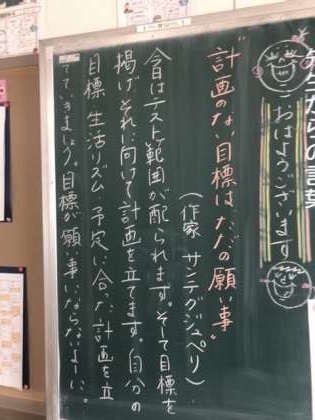 先生からの言葉
おはようございます
"計画のない目標は、ただの願い事"
(作家 サンテグジュペリ)
今日はテスト範囲が配られます。そして目標を
掲げ、それに向けて計画を立てます。自分の
目標、生活リズム、予定に合った計画を立
てていきましょう。目標が願い事にならないよーに。